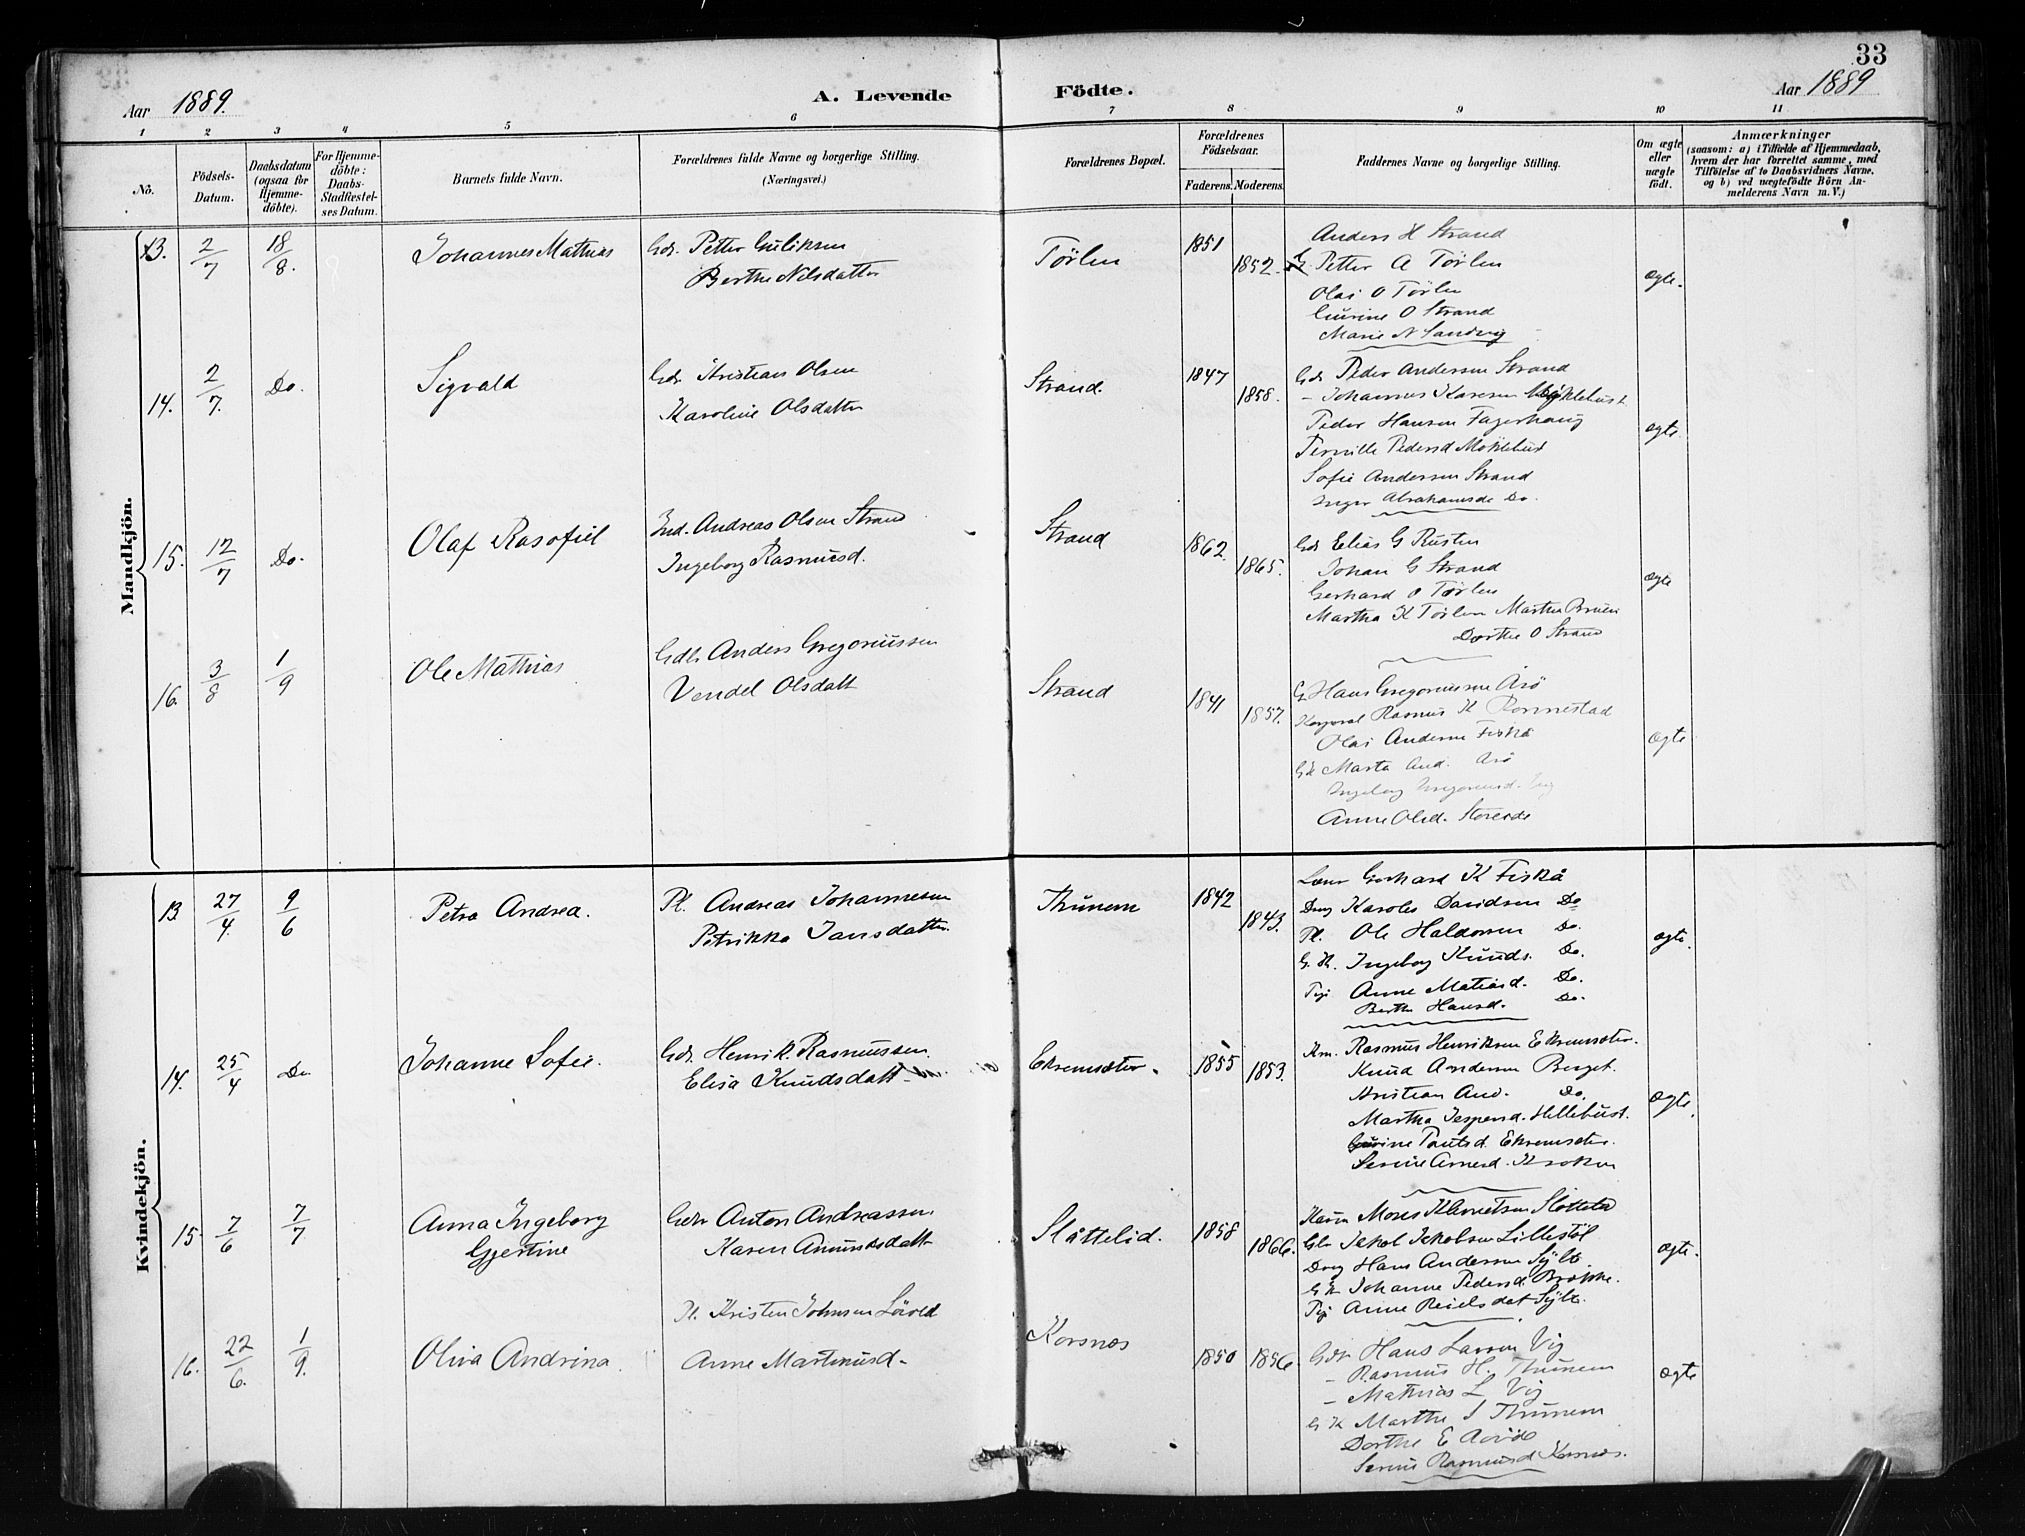 33
Aar 1889. A. Levende Födte. Aar 1889
1 2 3 4 5 6 7 8 9 10 11
No.
Födsels-Datum.
Daabsdatum (ogsaa for Hjemme-döbte).
For Hjemme-döbte: Daabs-Stadfæstel-ses Datum.
Barnets fulde Navn.
Forældrenes fulde Navne og borgerlige Stilling.
(Næringsvei.)
Forældrenes Bopæl.
Forældrenes Födselsaar.
Faderens. Moderens.
Faddernes Navne og borgerlige Stilling.
Om ægte eller uægte födt.
Anmærkninger
(saasom: a) i Tilfælde af Hjemmedaab, hvem der har forrettet samme, med Tilföielse af to Daabsvidners Navne, og b) ved uægtefödte Börn An-melderens Navn m. V.)
Mandkjön.
13. 2/7 18/8. Johannes Mathias
Gdr. Petter Guliksen
Berthe Nilsdatter
Törlen 1851 1852.
Anders H Strand
Petter A Törlen
Olai O Törlen
Gurine O Strand
Marie N Sandvig
ægte.
14. 2/7. Do. Sigvald
Gdr. Kristian Olsen
Karoline Olsdatter
Strand. 1847 1858.
Gdr Peder Andersen Strand
- Johannes Knutsen
Peder Hansen Fagerhaug
Pernille Pedersd Möklebust
Sofie Andersen Strand
Inger Abrahamsd Do.
ægte
15. 12/7 Do. Olaf Rasofiel
Ind. Andreas Olsen Strand
Ingeborg Rasmusd.
Strand 1862. 1865.
Gdr Elias G Rusten
Johan G Strand
Gerhard O Törlen
Martha K Törlen Marthe
Dorthe O Strand
ægte
16. 3/8 1/9 Ole Mathias
Gdbr Anders Gregoriussen
Vendel Olsdatt
Strand 1841 1857.
G. Hans Gregoriussen Arö
Korporal Rasmus K Rönnestad
Olai Andersen Fiskå
GK Marta And. Arö
Ingeborg Gregoriusd.
Anne Olsd. Storeide
ægte
Kvindekjön.
13 27/4. 9/6 Petra Andrea.
Pl. Andreas Johannesen
Petrikka Jansdatter.
Thunem 1842 1843.
Gerhard K Fiskå
Dreng Karolus Davidsen Do
Pl. Ole Haldorsen Do.
G. K. Ingeborg Knuds. Do.
Pige Anne Matiasd. Do.
Berthe Hansd. Do.
ægte.
14. 25/4 Do. Johanne Sofie.
Gdr. Henrik Rasmussen.
Elisa Knudsdatt
Ekremsæter. 1855 1853.
Km. Rasmus Henriksen Ekremsæter.
Knud Andersen Berget.
Kristian And. Do.
Martha Jespersd. Hellebust.
Gurine Paulsd. Ekremsæter.
Serine Arnesd. Kroken
ægte.
15. 7/6 7/7 Anna Ingeborg Gjertine
Gdr Anton Andreassen.
Karen Amundsdatt
Slåttelid. 1858 1866.
Moses
Gdr Jakob Jakobsen Lillestöl
Dreng Hans Andersen Sylte
GK Johanne Pedersd. Brække.
Pige Anne Reielsdat Sylte.
ægte.
16. 22/6. 1/9. Oliva Andrina.
Pl. Kristen Johnsen Lövold
Anne Martinusd.
Korsnæs 1850 1856.
Gdr Hans Larsen Vig
- Rasmus H. Thunem
- Mathias L. Vig
GK Marthe J Thunem
Dorthe E
Serine Rasmusd Korsnæs.
ægte